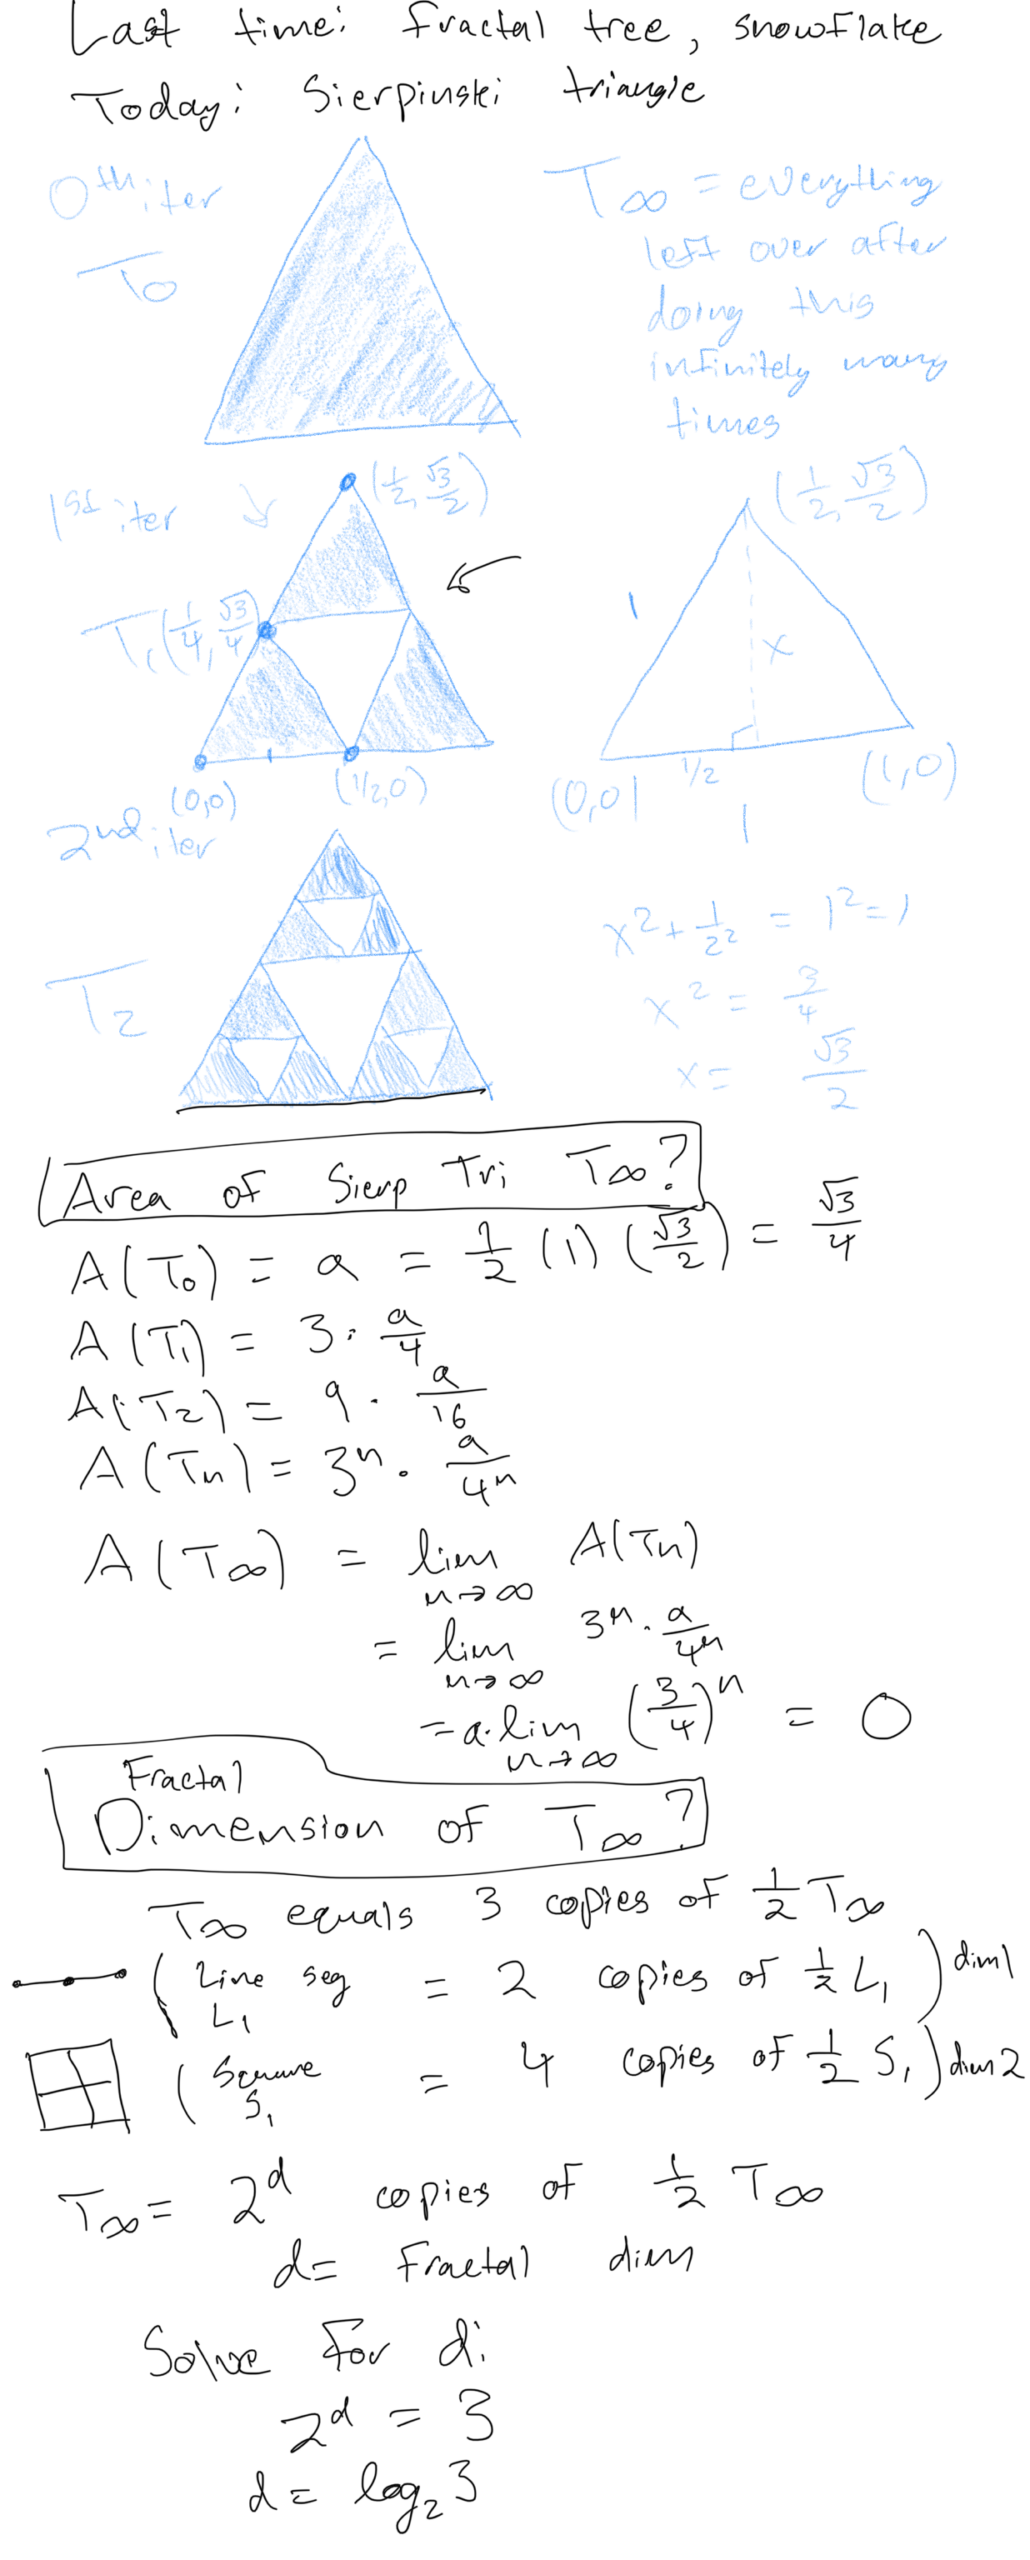 Last time: fractal tree, snowflake
Today: Sierpinski triangle
0th iter
T0
T∞ = everything
left over after
doing this
infinitely many
times
1st iter
(1/2, √3/2)
T1
(1/4, √3/4)
(0,0)
(1/2,0)
(1/2, √3/2)
1
x
(0,0)
1/2
(1,0)
1
2nd iter
T2
x² + 1/2² = 1² = 1
x² = 3/4
x = √3/2
Area of Sierp Tri T∞?
A(T0) = a = 1/2 (1) (√3/2) = √3/4
A(T1) = 3 · a/4
A(T2) = 9 · a/16
A(Tn) = 3ⁿ · a/4ⁿ
A(T∞) = lim n→∞ A(Tn)
= lim n→∞ 3ⁿ · a/4ⁿ
= a · lim n→∞ (3/4)ⁿ = 0
Fractal
Dimension of T∞?
T∞ equals 3 copies of 1/2 T∞
(Line seg L1 = 2 copies of 1/2 L1) dim 1
(Square S1 = 4 copies of 1/2 S1) dim 2
T∞ = 2^d copies of 1/2 T∞
d = Fractal dim
Solve for d:
2^d = 3
d = log₂ 3